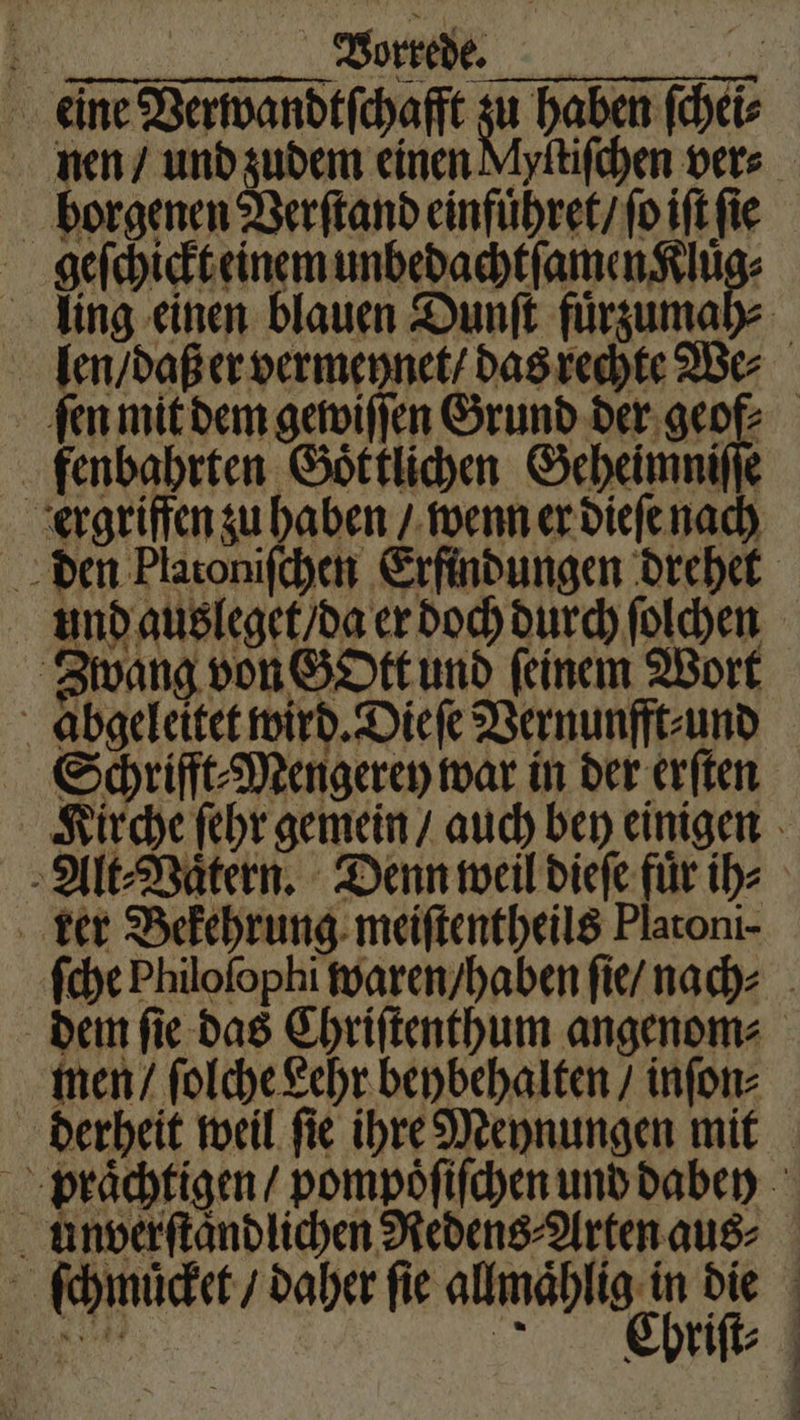 Vorrede.
eine Verwandtſchafft zu haben ſchei⸗
nen / und zudem einen Myſtiſchen ver⸗
borgenen Verſtand einfuͤhret / ſo iſt ſie
geſchickt einem unbedachtſamen Kluͤg⸗
ling einen blauen Dunſt fuͤrzumah⸗
len / daß er vermeynet / das rechte We⸗
ſen mit dem gewiſſen Grund der geof⸗
fenbahrten Goͤttlichen Geheimniſſe
ergriffen zu haben / wenn er dieſe nach
den Platoniſchen Erfindungen drehet
und ausleget / da er doch durch ſolchen
Zwang von GOtt und ſeinem Wort
abgeleitet wird. Dieſe Vernunfft⸗und
Schrifft⸗Mengerey war in der erſten
Kirche ſehr gemein / auch bey einigen
Alt⸗Vaͤtern. Denn weil dieſe fuͤr ih⸗
rer Bekehrung meiſtentheils Platoni-
ſche Philoſophi waren / haben ſie / nach⸗
dem ſie das Chriſtenthum angenom⸗
men / ſolche Lehr beybehalten / inſon⸗
derheit weil ſie ihre Meynungen mit
praͤchtigen / pompoͤſiſchen und dabey
unverſtaͤndlichen Redens⸗Arten aus⸗
ſchmuͤcket / daher ſie allmaͤhlig in die
Chriſt⸗